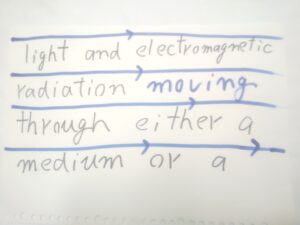 light and electromagnetic
radiation moving
through either a
medium or a